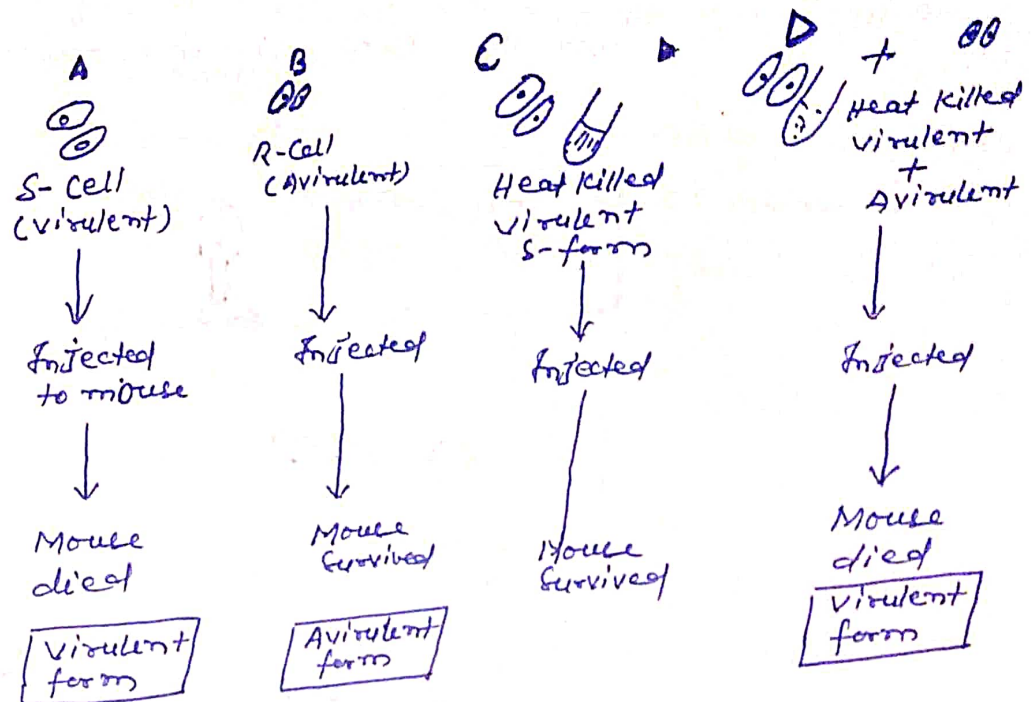 A
S-Cell
(Virulent)
Injected
to mouse
Mouse
died
Virulent
form
B
R-Cell
(Avirulent)
Injected
Mouse
Survived
Avirulent
form
C
Heat killed
virulent
S-form
Injected
Mouse
Survived
D
+
Heat killed
virulent
+
Avirulent
Injected
Mouse
died
Virulent
form